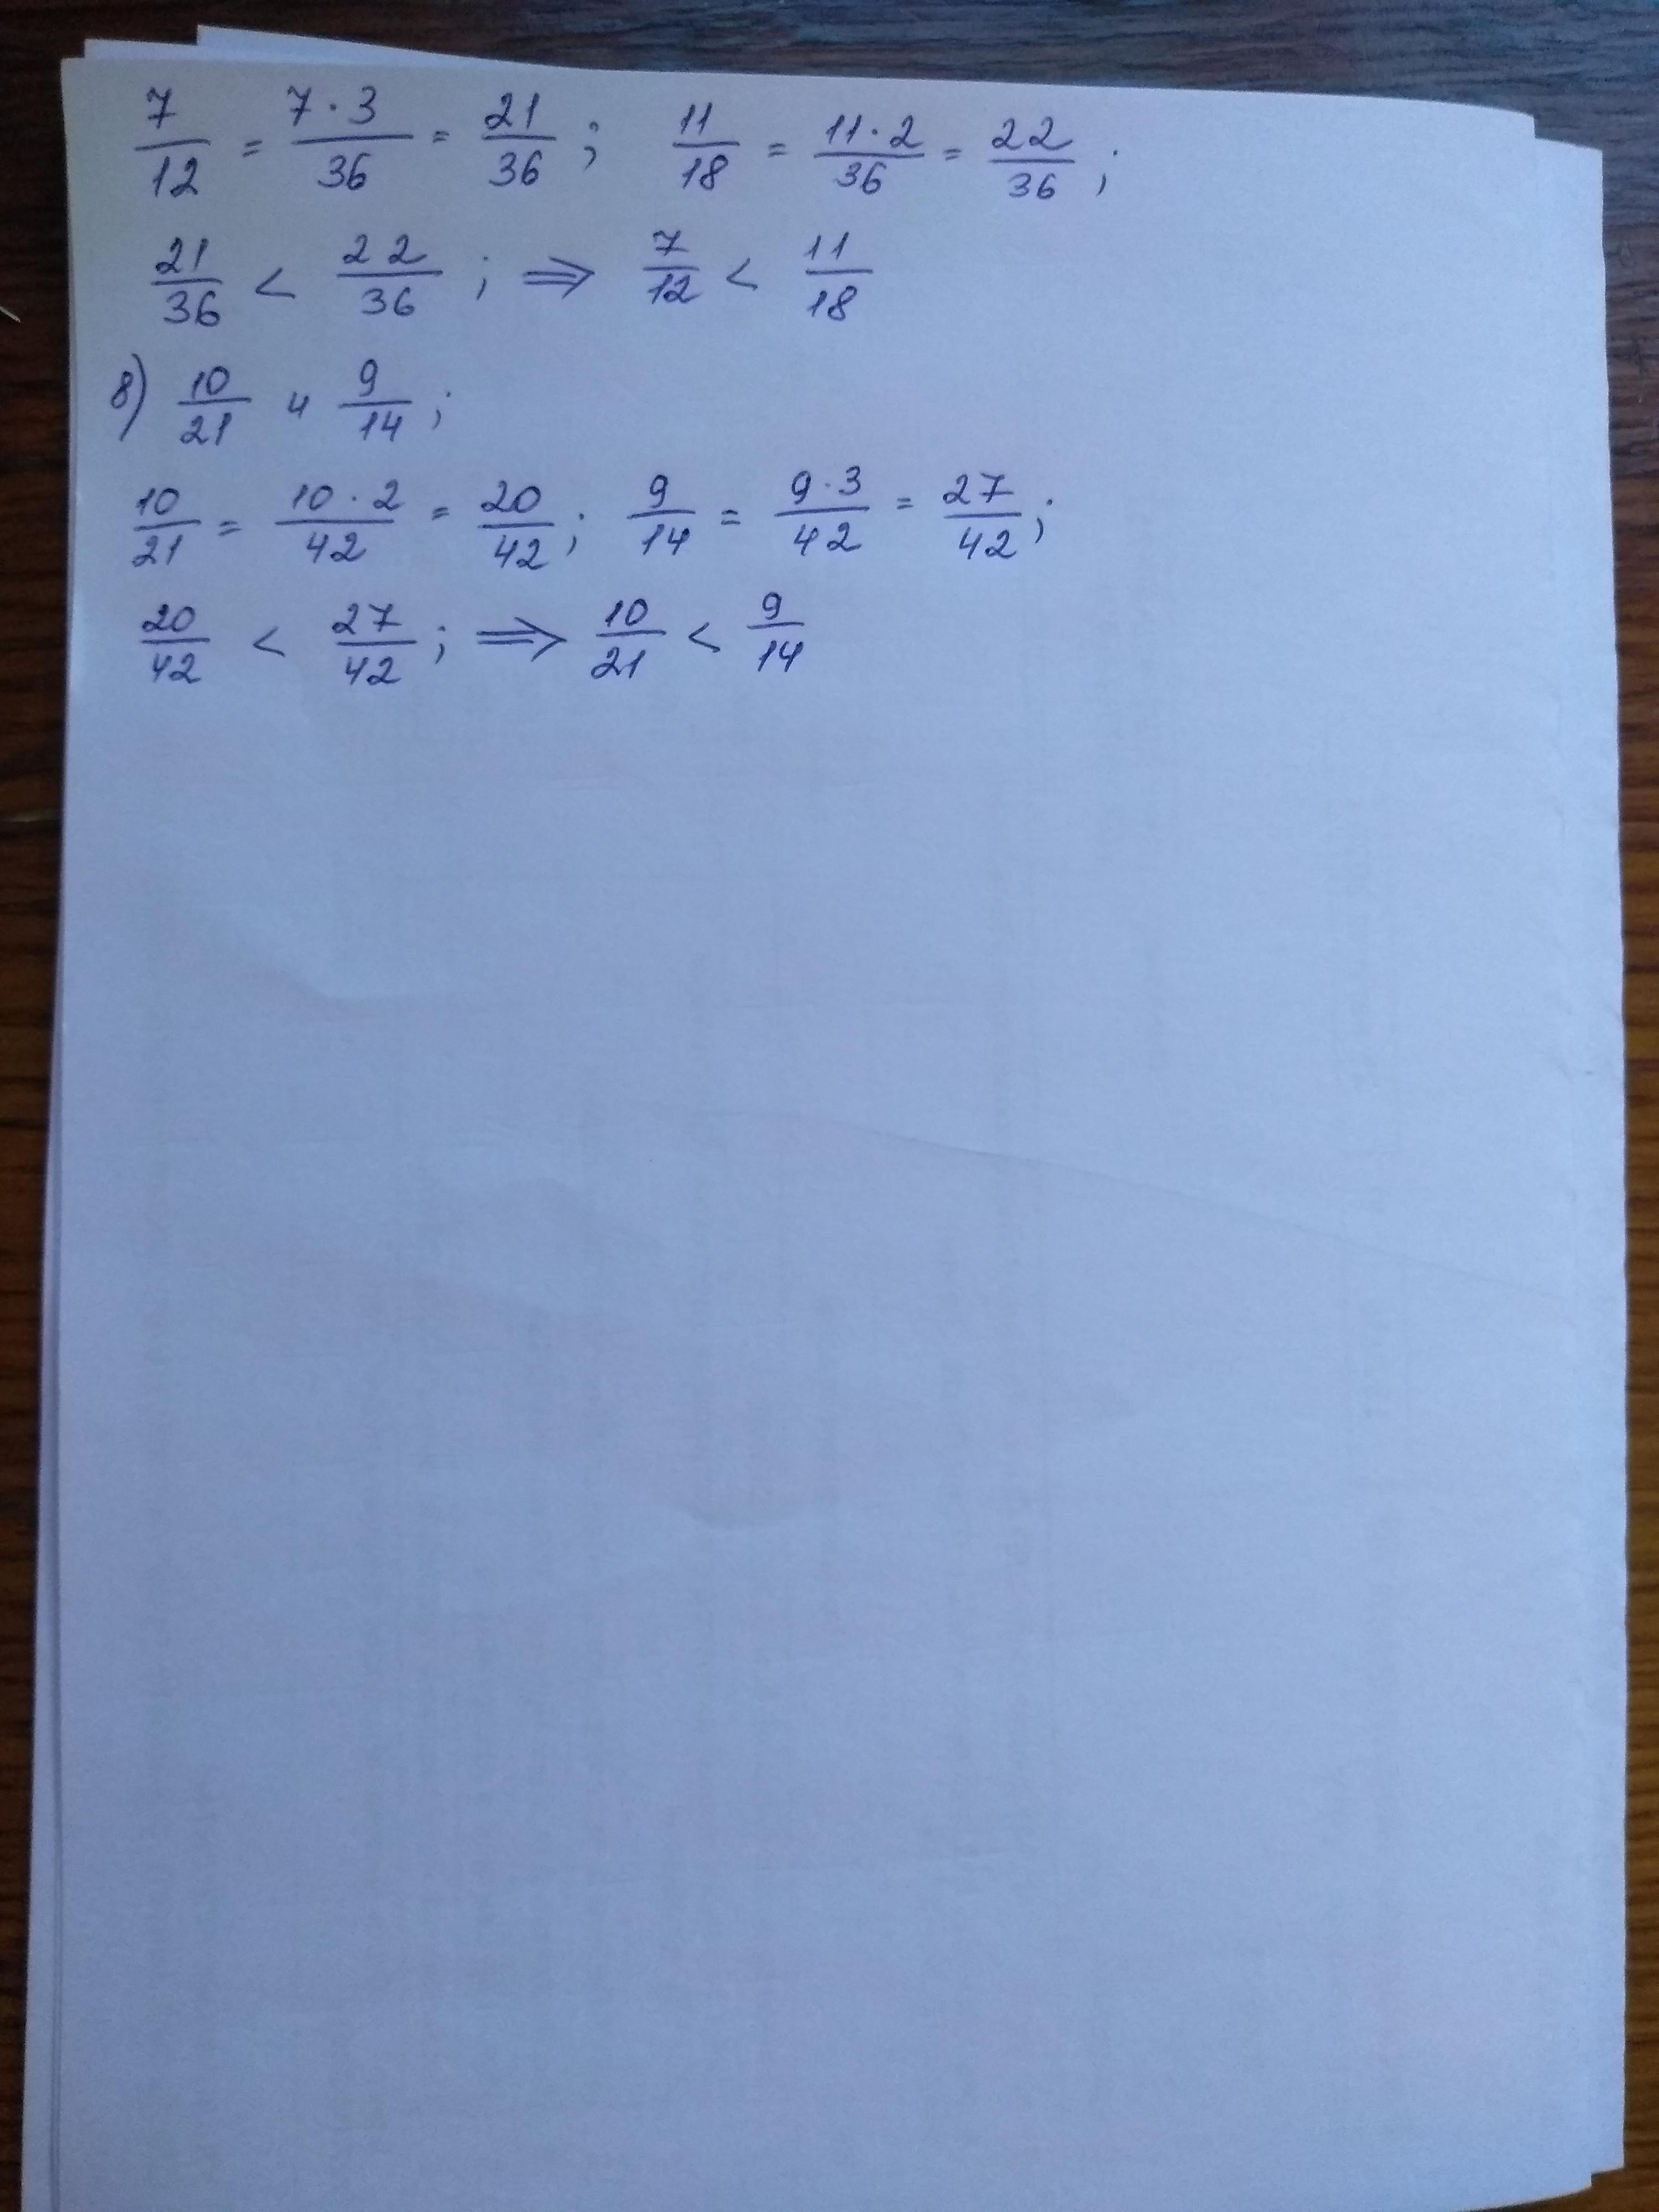 7/12 = 7·3/36 = 21/36 ; 11/18 = 11·2/36 = 22/36 ;
21/36 < 22/36 ; ⇒ 7/12 < 11/18
8) 10/21 и 9/14 ;
10/21 = 10·2/42 = 20/42 ; 9/14 = 9·3/42 = 27/42 ;
20/42 < 27/42 ; ⇒ 10/21 < 9/14